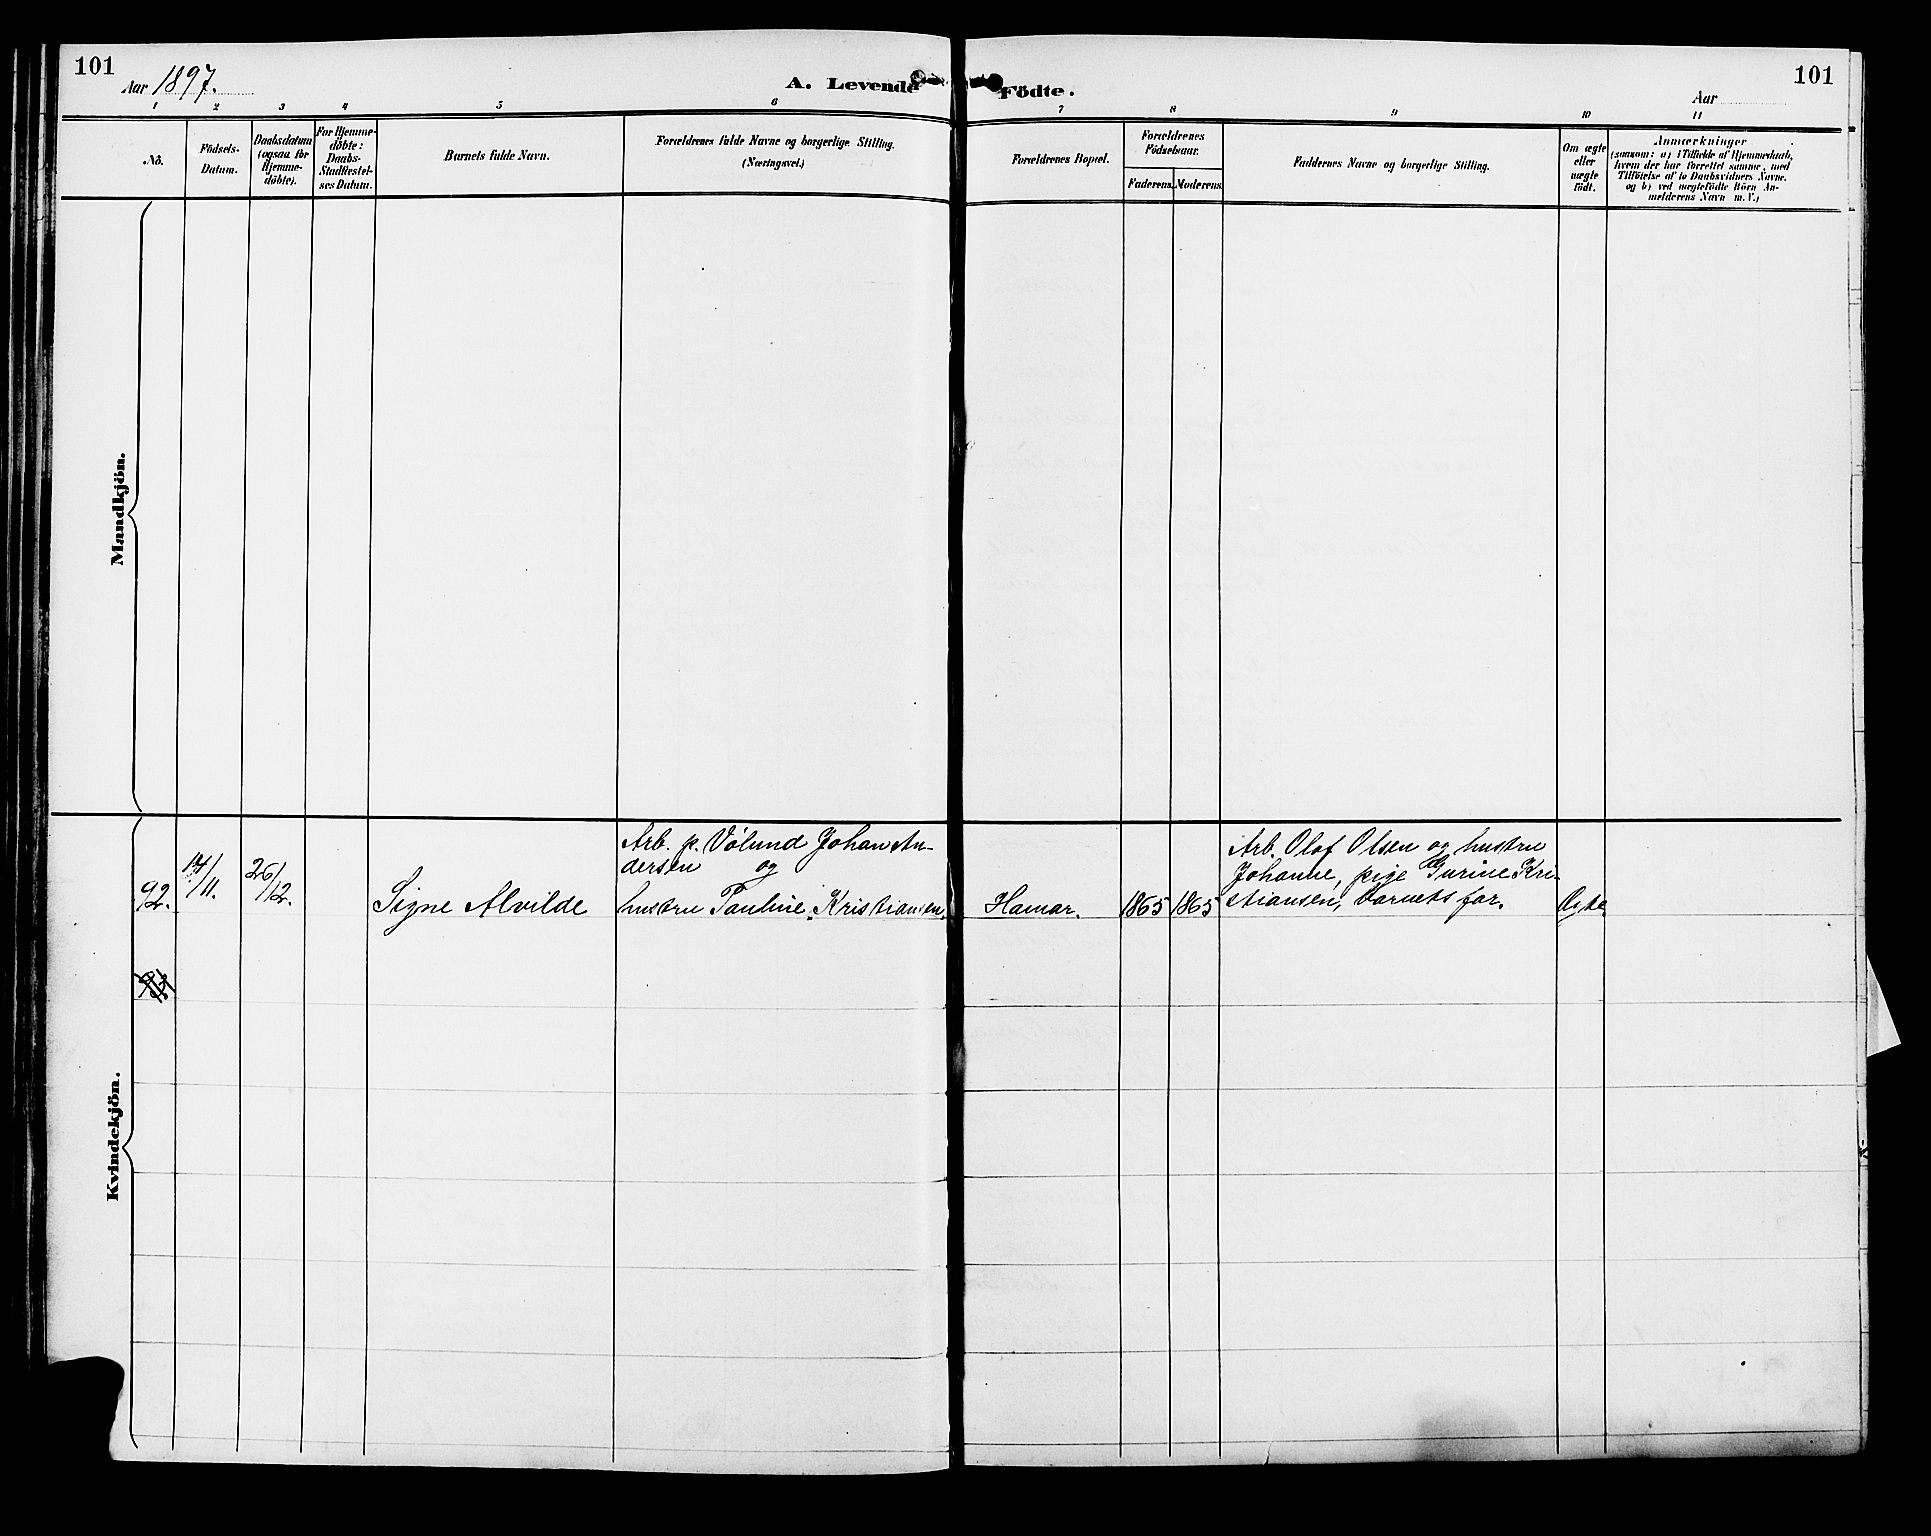 101
Aar 1897.
A. Levende Födte.
101
Aar
1 2 3 4 5 6 7 8 9 10 11
No.
Födsels-
Datum.
Daabsdatum
(ogsaa for
Hjemme-
döbte).
For Hjemme-
döbte:
Daabs-
Stadfæstel-
ses Datum.
Barnets fulde Navn.
Forældrenes fulde Navne og borgerlige Stilling.
(Næringsvei.)
Forældrenes Bopæl.
Forældrenes
Födselsaar.
Faderens.
Moderens.
Faddernes Navne og borgerlige Stilling.
Om ægte
eller
uægte
födt.
Anmærkninger
(saasom: a) i Tilfælde af Hjemmedaab,
hvem der har forrettet samme, med
Tilföielse af to Daabsvidners Navne.
og b) ved uægtefödte Börn An-
melderens Navn m. V.)
Mandkjön.
Kvindekjön.
92.
14/11.
26/12.
Signe Alvilde
Arb. p. Vølund Johan An-
dersen og
hustru Pauline Kristiansen.
Hamar.
1865
1865
Arb. Olof Olsen og hustru
Johanne, pige Gurine Kri-
stiansen, barnets far.
Ægte